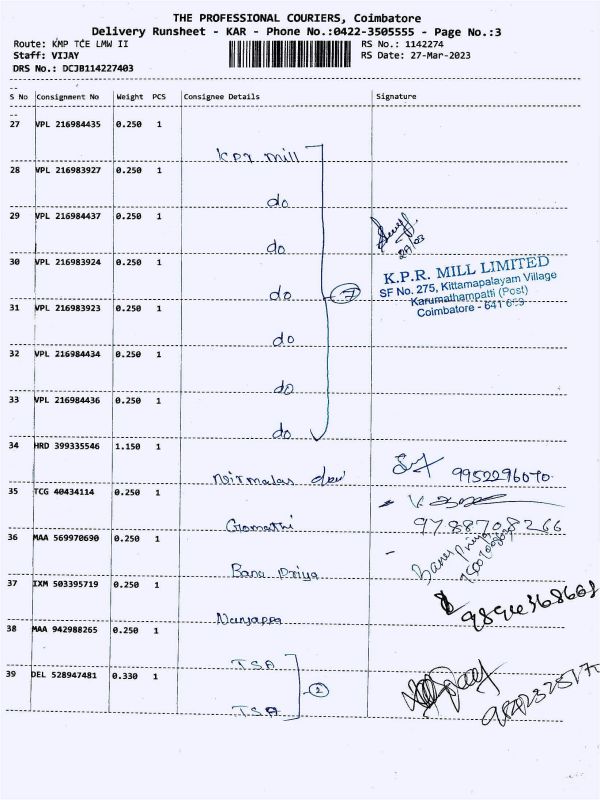 THE PROFESSIONAL COURIERS, Coimbatore
Delivery Runsheet - KAR - Phone No.:0422-3505555 - Page No.:3
Route: KMP TCE LMW II RS No.: 1142274
Staff: VIJAY RS Date: 27-Mar-2023
DRS No.: DCJB114227403
S No Consignment No Weight PCS Consignee Details Signature
27 VPL 216984435 0.250 1
KPR mill
28 VPL 216983927 0.250 1
do
29 VPL 216984437 0.250 1
do
27/03
30 VPL 216983924 0.250 1
do 7
K.P.R. MILL LIMITED
SF No. 275, Kittamapalayam Village
Karumathampatti (Post)
Coimbatore - 641
31 VPL 216983923 0.250 1
do
32 VPL 216984434 0.250 1
do
33 VPL 216984436 0.250 1
do
34 HRD 399335546 1.150 1
Nirmala devi 9952296070
35 TCG 40434114 0.250 1
Gomathi 9788708266
36 MAA 569970690 0.250 1
Banu Priya Banu Priya
37 IXM 503395719 0.250 1
Nanjappa
38 MAA 942988265 0.250 1
TSA
39 DEL 528947481 0.330 1 2
TSA